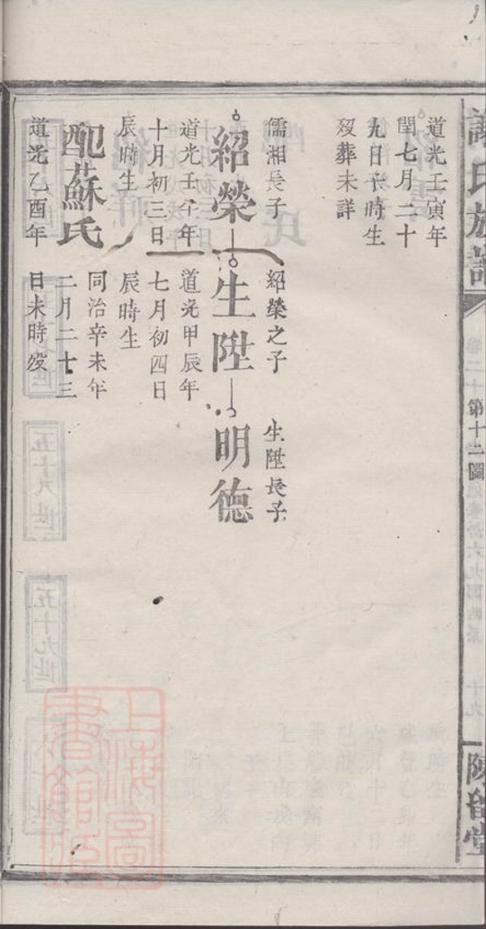 道光壬寅年
閏七月二十
九日未時生
歿葬未詳
儒湘長子
紹榮
道光壬午年
十月初三日
辰時生
配蘇氏
道光乙酉年
紹榮之子
生陞
道光甲辰年
七月初四日
辰時生
同治辛未年
二月二十三
日未時歿
生陞長子
明德
第十二圖
十九
上海圖書館藏